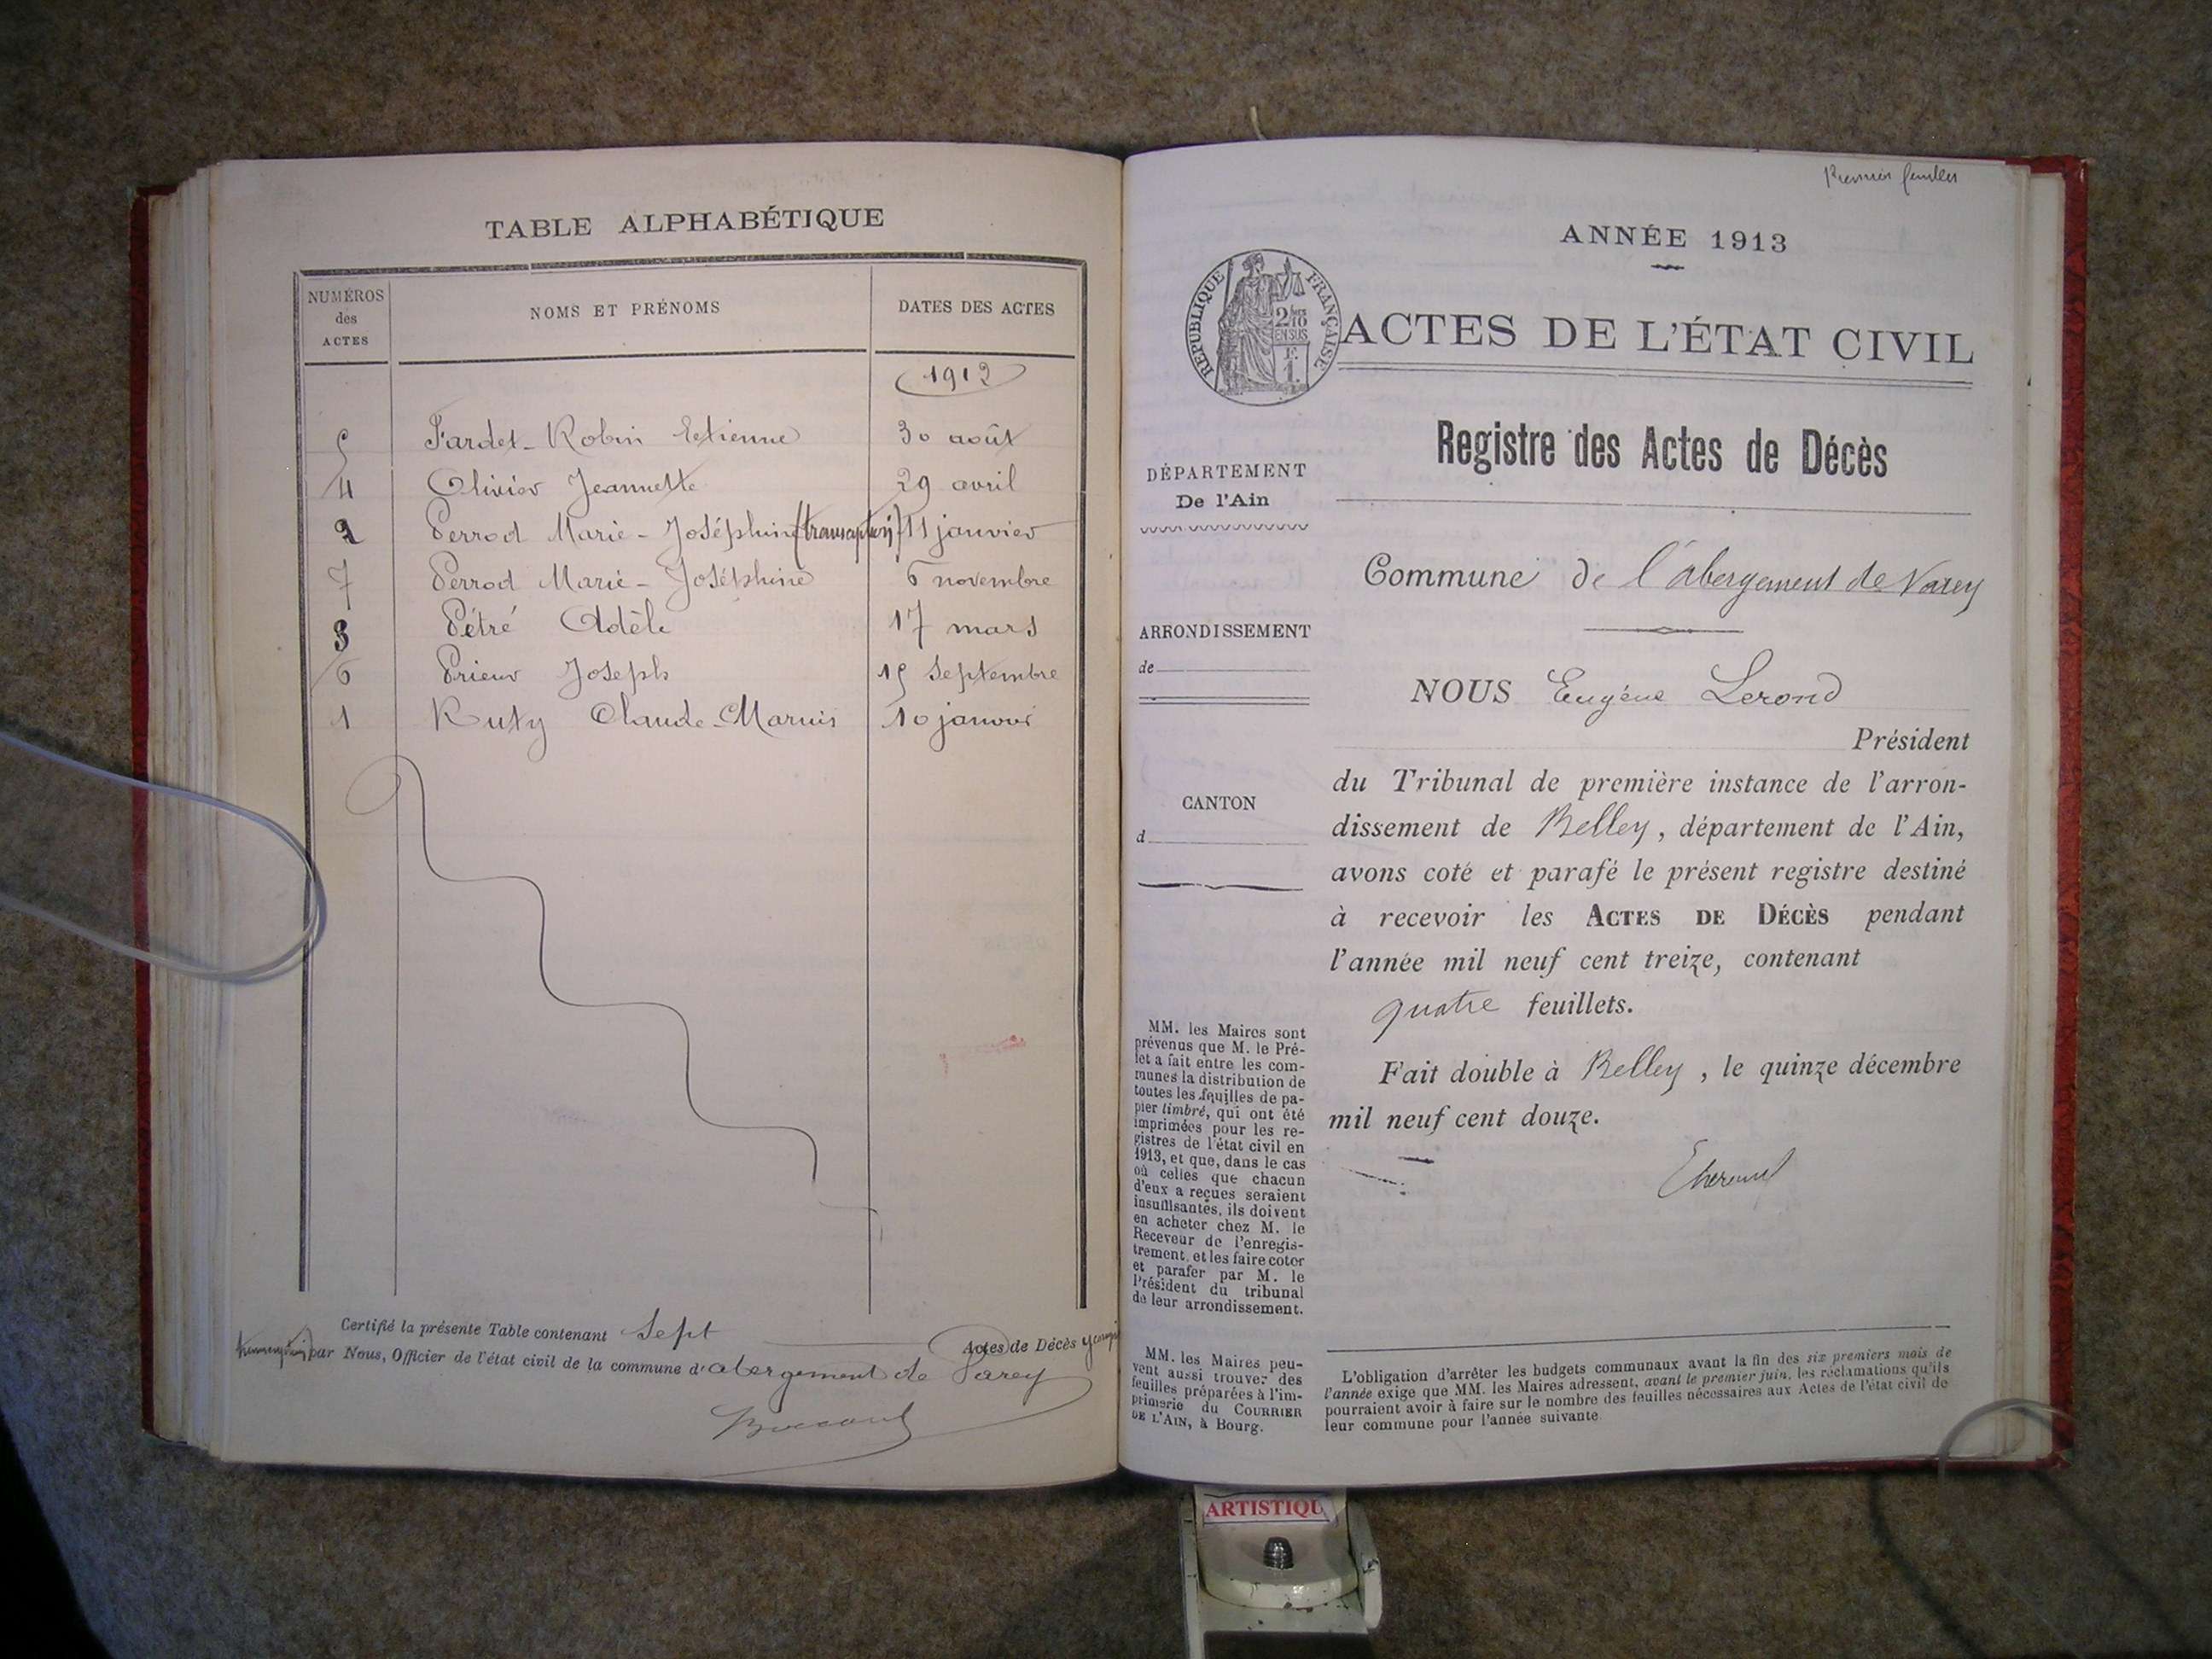 TABLE ALPHABÉTIQUE
NUMÉROS des ACTES
NOMS ET PRÉNOMS
DATES DES ACTES
1912
5 Fardet-Robin Etienne 30 août
4 Olivier Jeannette 29 avril
2 Perrod Marie-Joséphine (transcription) 11 janvier
7 Perrod Marie-Joséphine 6 novembre
3 Pétré Adèle 17 mars
6 Prieur Joseph 15 septembre
1 Ruty Claude-Marius 10 janvier
Certifié la présente Table contenant Sept Actes de Décès
par Nous, Officier de l'état civil de la commune d'abergement de Varey
Premier feuillet
ANNÉE 1913
RÉPUBLIQUE FRANÇAISE
2/10 EN SUS
F. 1.
ACTES DE L'ÉTAT CIVIL
Registre des Actes de Décès
DÉPARTEMENT
De l'Ain
Commune de l'abergement de Varey
ARRONDISSEMENT
de
NOUS Eugène Lerond
Président
du Tribunal de première instance de l'arron-
CANTON
d
dissement de Belley, département de l'Ain,
avons coté et parafé le présent registre destiné
à recevoir les ACTES DE DÉCÈS pendant
l'année mil neuf cent treize, contenant
quatre feuillets.
Fait double à Belley, le quinze décembre
mil neuf cent douze.
MM. les Maires sont
prévenus que M. le Pré-
fet a fait entre les com-
munes la distribution de
toutes les feuilles de pa-
pier timbré, qui ont été
imprimées pour les re-
gistres de l'état civil en
1913, et que, dans le cas
où celles que chacun
d'eux a reçues seraient
insuffisantes, ils doivent
en acheter chez M. le
Receveur de l'enregis-
trement, et les faire coter
et parafer par M. le
Président du tribunal
de leur arrondissement.
MM. les Maires peu-
vent aussi trouver des
feuilles préparées à l'im-
primerie du COURRIER
DE L'AIN, à Bourg.
L'obligation d'arrêter les budgets communaux avant la fin des six premiers mois de
l'année exige que MM. les Maires adressent, avant le premier juin, les réclamations qu'ils
pourraient avoir à faire sur le nombre des feuilles nécessaires aux Actes de l'état civil de
leur commune pour l'année suivante.
ARTISTIQU